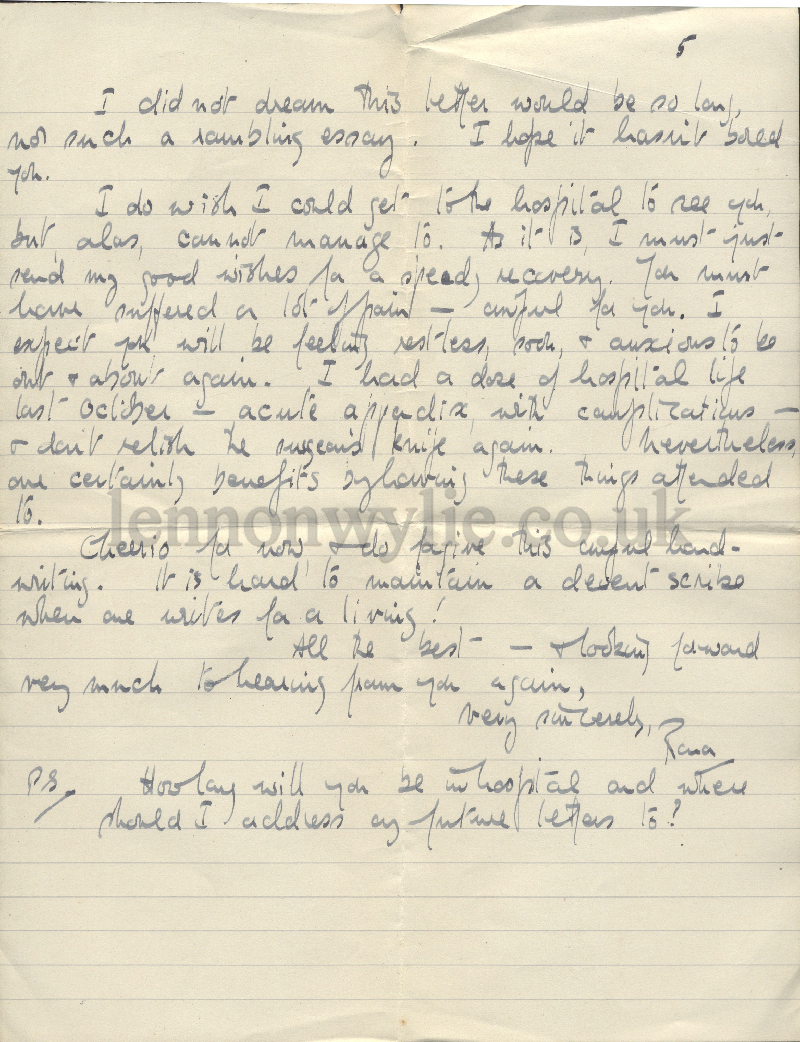 5
I did not dream this letter would be so long,
nor such a rambling essay. I hope it hasn't bored
you.
I do wish I could get to the hospital to see you,
but, alas, cannot manage to. As it is, I must just
send my good wishes for a speedy recovery. You must
have suffered a lot of pain — awful for you. I
expect you will be feeling restless, soon, & anxious to be
out & about again. I had a dose of hospital life
last October — acute appendix, with complications —
& don't relish the surgeon's knife again. Nevertheless,
one certainly benefits by having these things attended
to.
lennonwylie.co.uk
Cheerio for now & do forgive this awful hand-
writing. It is hard to maintain a decent scribe
when one writes for a living!
All the best — & looking forward
very much to hearing from you again,
Very sincerely,
Rona
PS. How long will you be in hospital and where
should I address any future letters to?